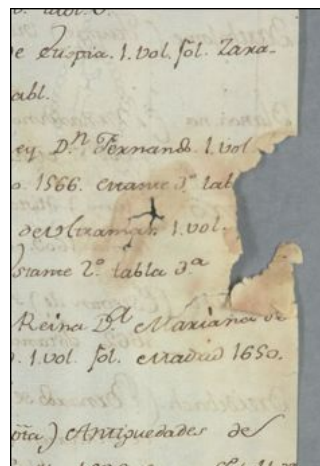 e Eugia. 1. vol. fol. Zara-
abl.
ey D.ⁿ Fernando. 1. vol
o. 1566. estante 3º tab
de Ultramar. 1. vol.
estante 2º tabla 3ª
Reina D.ª Mariana de
. 1. vol. fol. Madrid 1650.
Antiguedades de